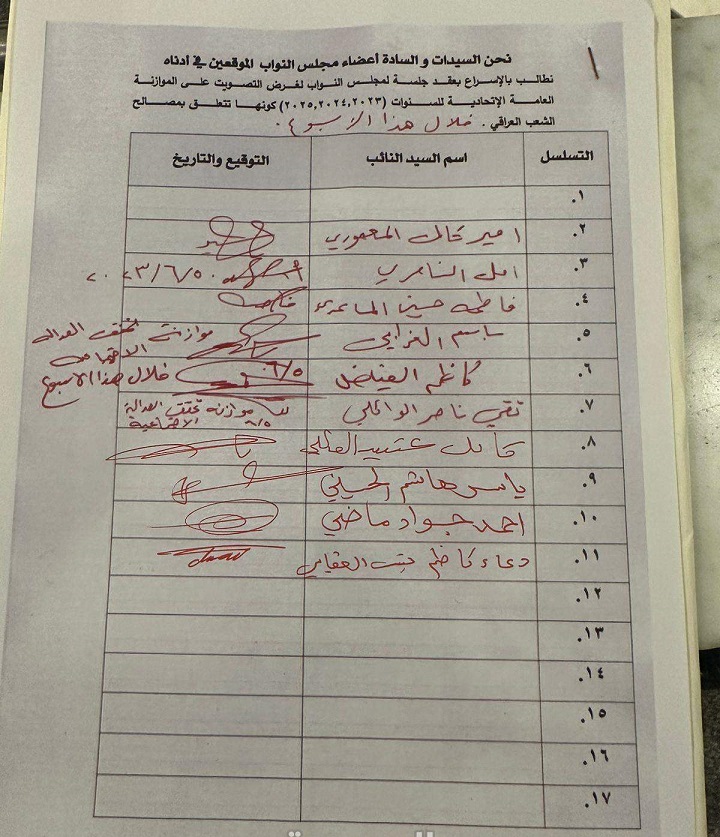 نحن السيدات و السادة أعضاء مجلس النواب الموقعين في أدناه
نطالب بالإسراع بعقد جلسة لمجلس النواب لغرض التصويت على الموازنة
العامة الإتحادية للسنوات (٢٠٢٥,٢٠٢٤,٢٠٢٣) كونها تتعلق بمصالح
الشعب العراقي . خلال هذا الأسبوع .
التسلسل اسم السيد النائب التوقيع والتاريخ
١.
٢. امير المعموري
٣. امل ٢٠٢٣/٦/٥
٤. فاطمة حسين
٥. باسم الغرابي موازنة تحقق العدالة
الاجتماعية
٦. كاظم ٦/٥ خلال هذا الاسبوع
٧. تقي ناصر الوائلي موازنة تحقق العدالة
الاجتماعية ٦/٥
٨. كامل
٩. ياسر هاشم الحسيني
١٠. احمد جواد ماضي
١١. دعاء كاظم
١٢.
١٣.
١٤.
١٥.
١٦.
١٧.